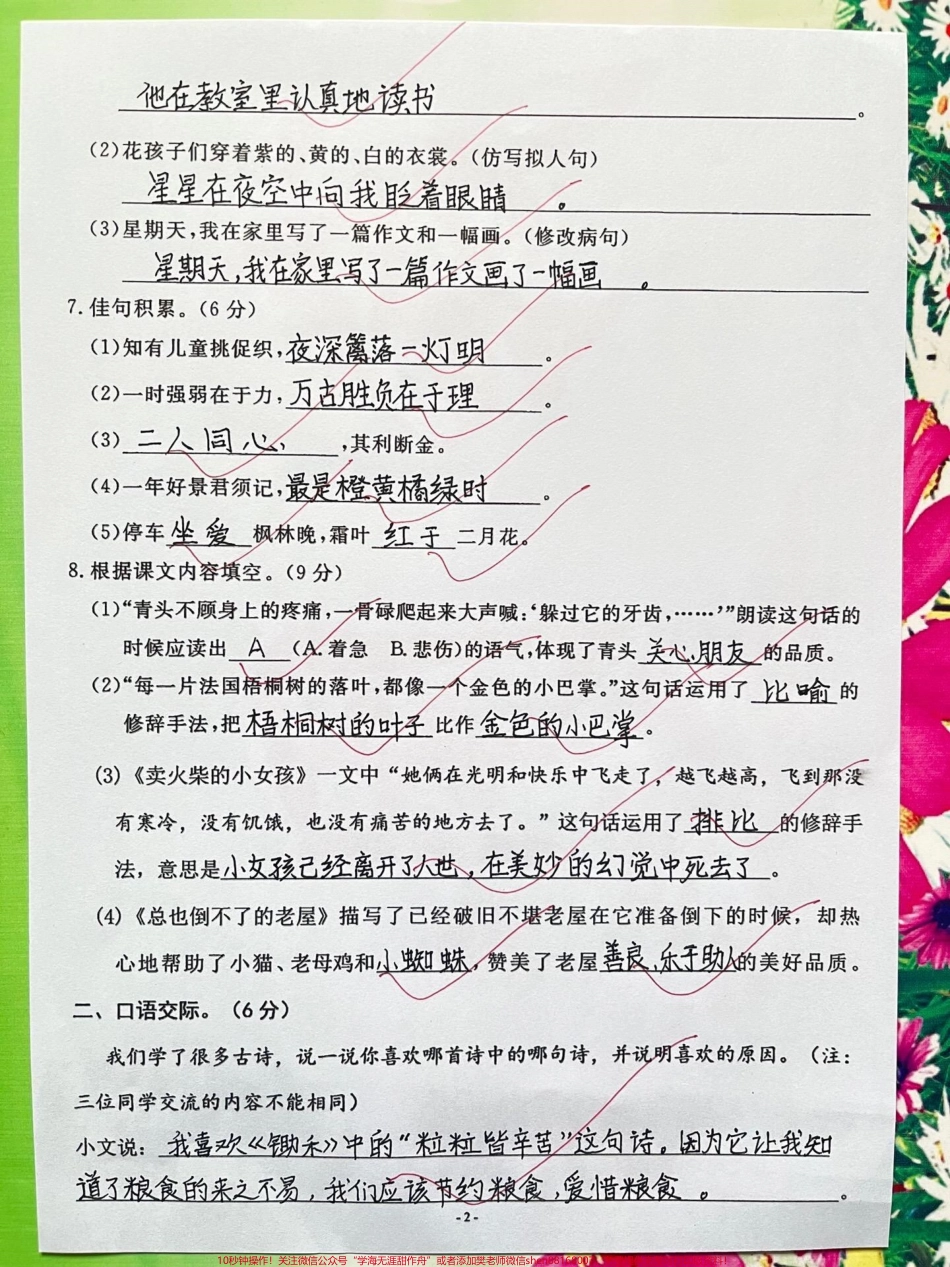 他在教室里认真地读书。
(2)花孩子们穿着紫的、黄的、白的衣裳。(仿写拟人句)
星星在夜空中向我眨着眼睛。
(3)星期天,我在家里写了一篇作文和一幅画。(修改病句)
星期天,我在家里写了一篇作文画了一幅画。
7.佳句积累。(6分)
(1)知有儿童挑促织,夜深篱落一灯明。
(2)一时强弱在于力,万古胜负在于理。
(3)二人同心,,其利断金。
(4)一年好景君须记,最是橙黄橘绿时。
(5)停车坐爱枫林晚,霜叶红于二月花。
8.根据课文内容填空。(9分)
(1)“青头不顾身上的疼痛,一骨碌爬起来大声喊:‘躲过它的牙齿,……’”朗读这句话的
时候应读出A(A.着急 B.悲伤)的语气,体现了青头关心朋友的品质。
(2)“每一片法国梧桐树的落叶,都像一个金色的小巴掌。”这句话运用了比喻的
修辞手法,把梧桐树的叶子比作金色的小巴掌。
(3)《卖火柴的小女孩》一文中“她俩在光明和快乐中飞走了,越飞越高,飞到那没
有寒冷,没有饥饿,也没有痛苦的地方去了。”这句话运用了排比的修辞手
法,意思是小女孩已经离开了人世,在美妙的幻觉中死去了。
(4)《总也倒不了的老屋》描写了已经破旧不堪老屋在它准备倒下的时候,却热
心地帮助了小猫、老母鸡和小蜘蛛,赞美了老屋善良、乐于助人的美好品质。
二、口语交际。(6分)
我们学了很多古诗,说一说你喜欢哪首诗中的哪句诗,并说明喜欢的原因。(注:
三位同学交流的内容不能相同)
小文说:我喜欢《锄禾》中的“粒粒皆辛苦”这句诗。因为它让我知
道了粮食的来之不易,我们应该节约粮食,爱惜粮食。。
-2-
10秒钟操作!关注微信公众号“学海无涯甜作舟”或者添加樊老师微信